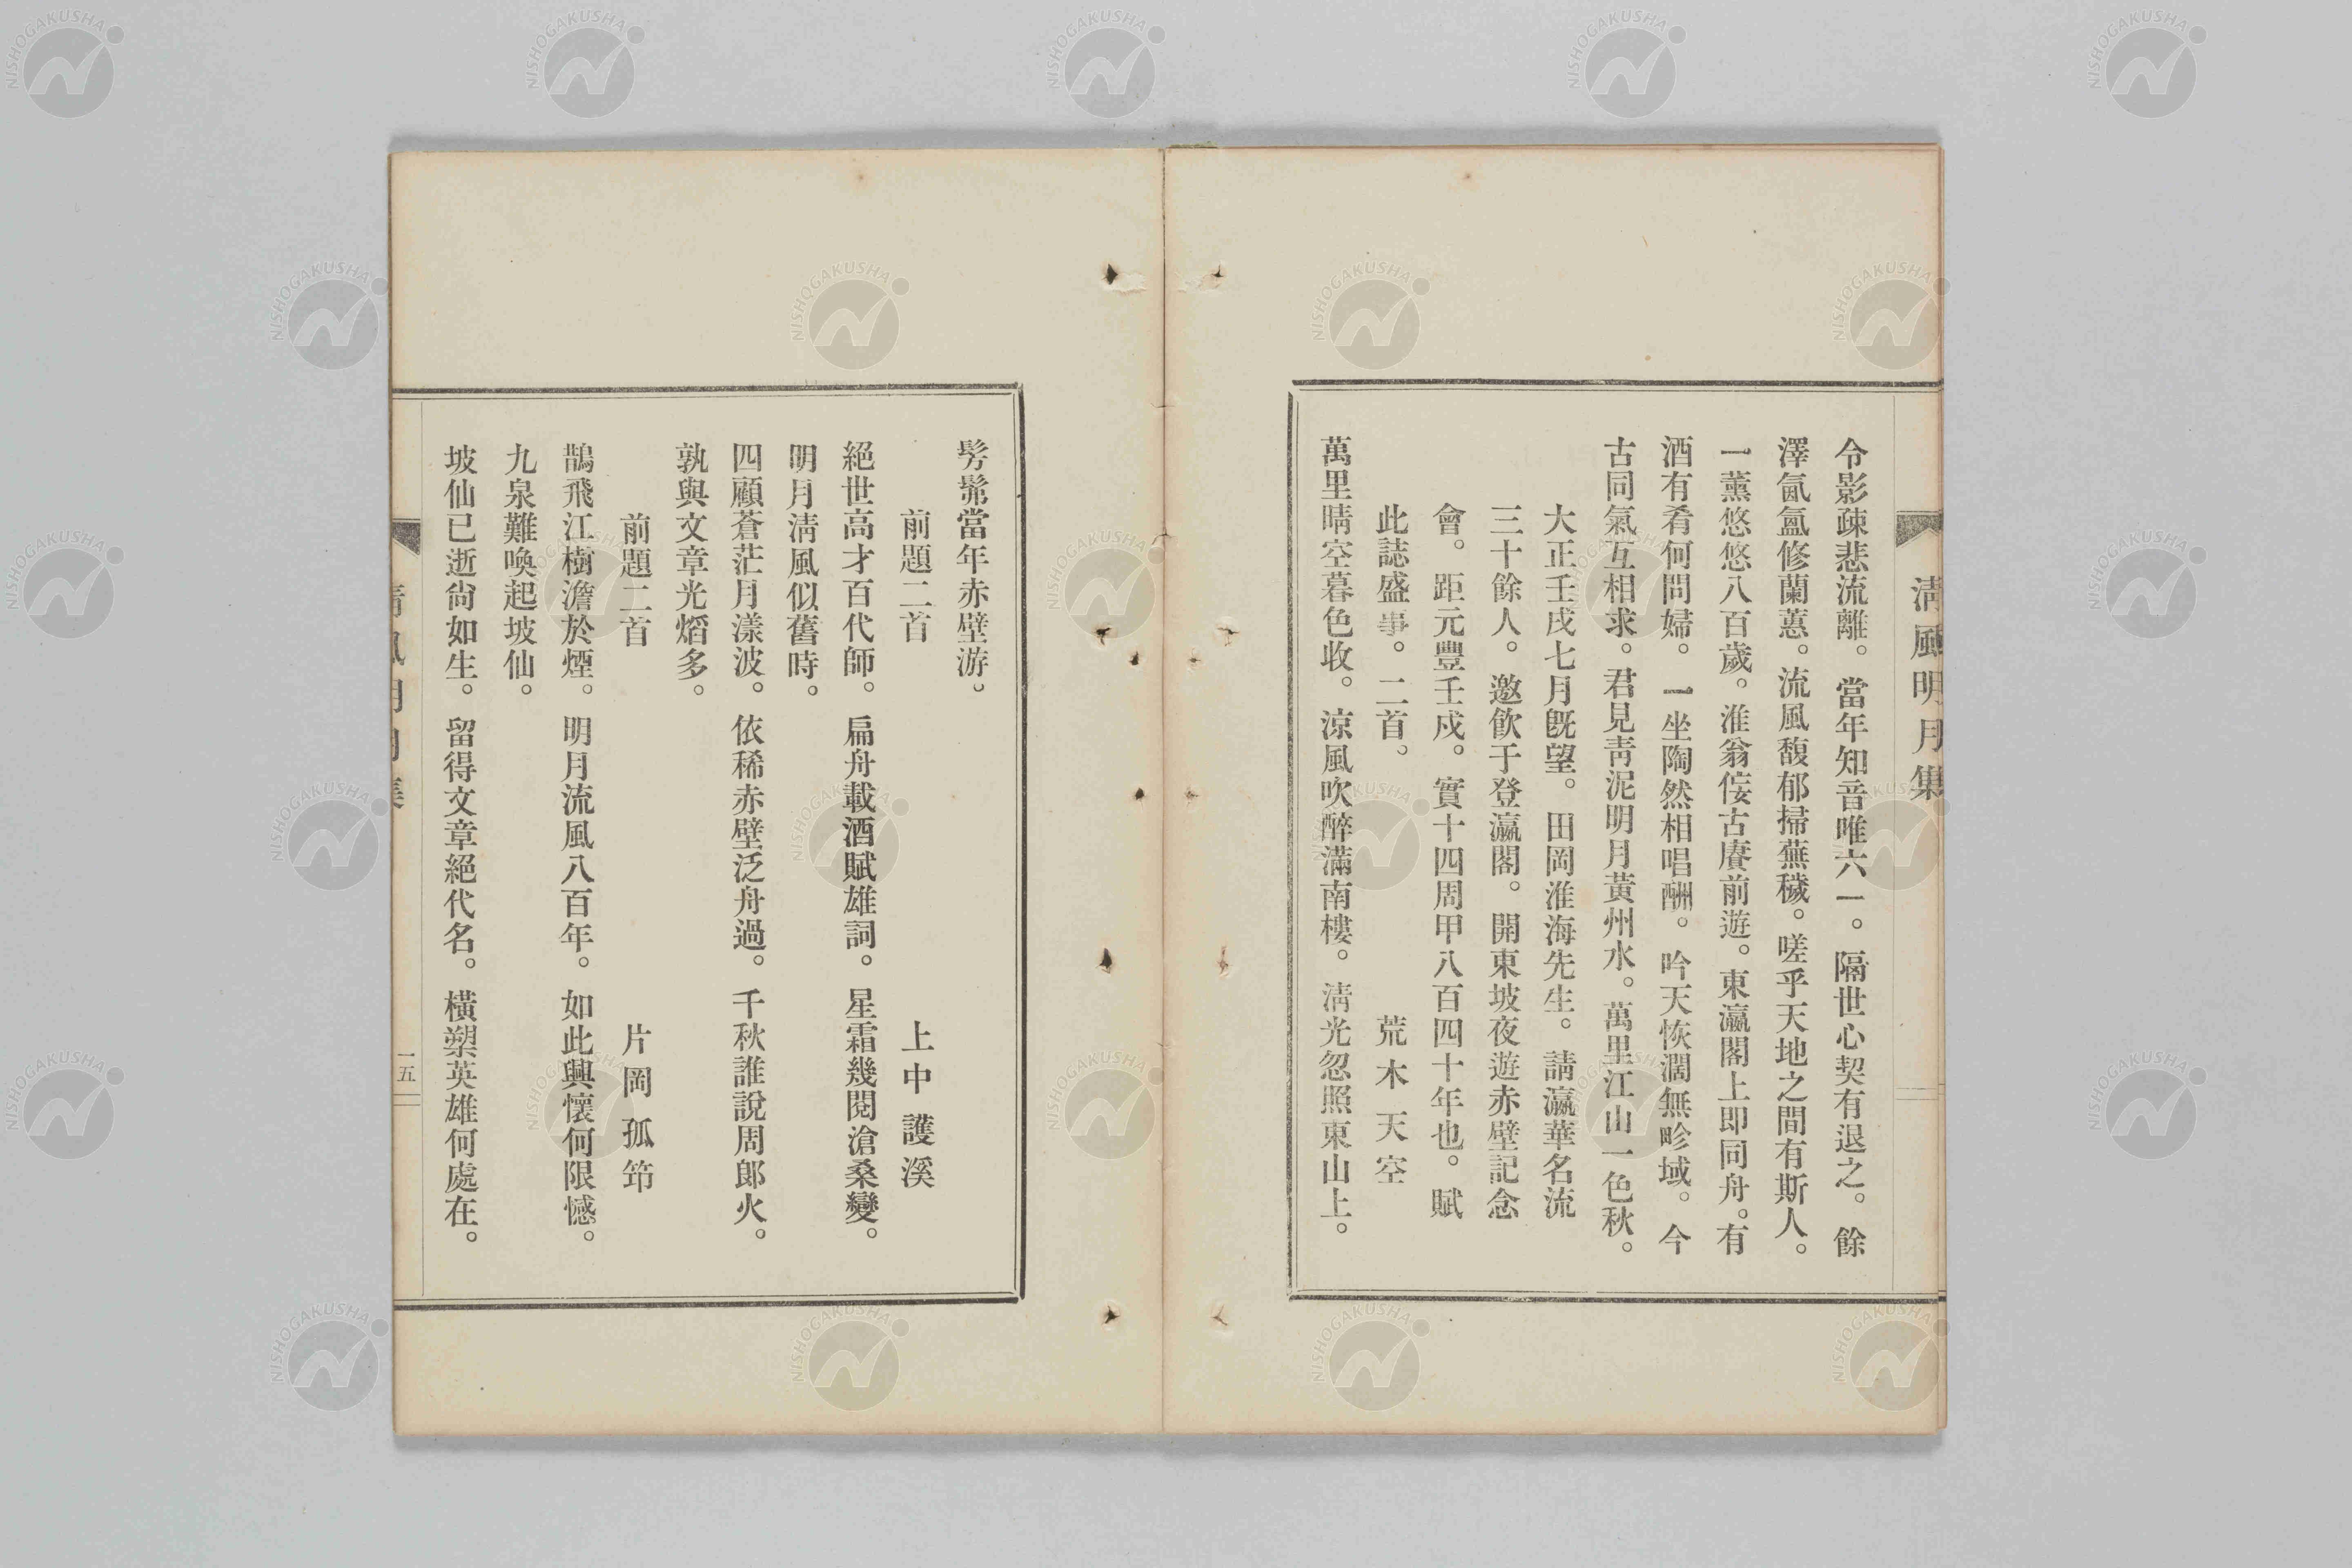 清風明月集
令影疎悲流離。當年知音唯六一。隔世心契有退之。餘
澤氤氳修蘭蕙。流風馥郁掃蕪穢。嗟乎天地之間有斯人。
一薰悠悠八百歲。淮翁侫古賡前遊。東瀛閣上即同舟。有
酒有肴何問婦。一坐陶然相唱酬。吟天恢濶無畛域。今
古同氣互相求。君見靑泥明月黃州水。萬里江山一色秋。
大正壬戌七月旣望。田岡淮海先生。請瀛華名流
三十餘人。邀飮于登瀛閣。開東坡夜遊赤壁記念
會。距元豐壬戌。實十四周甲八百四十年也。賦
此誌盛事。二首。 荒木天空
萬里晴空暮色收。涼風吹醉滿南樓。淸光忽照東山上。
髣髴當年赤壁游。
前題二首 上中護溪
絕世高才百代師。扁舟載酒賦雄詞。星霜幾閱滄桑變。
明月淸風似舊時。
四顧蒼茫月漾波。依稀赤壁泛舟過。千秋誰說周郞火。
孰與文章光熖多。
前題二首 片岡孤筇
鵲飛江樹澹於煙。明月流風八百年。如此興懷何限憾。
九泉難喚起坡仙。
坡仙已逝尙如生。留得文章絕代名。橫槊英雄何處在。
清風明月集
一五
NISHOGAKUSHA